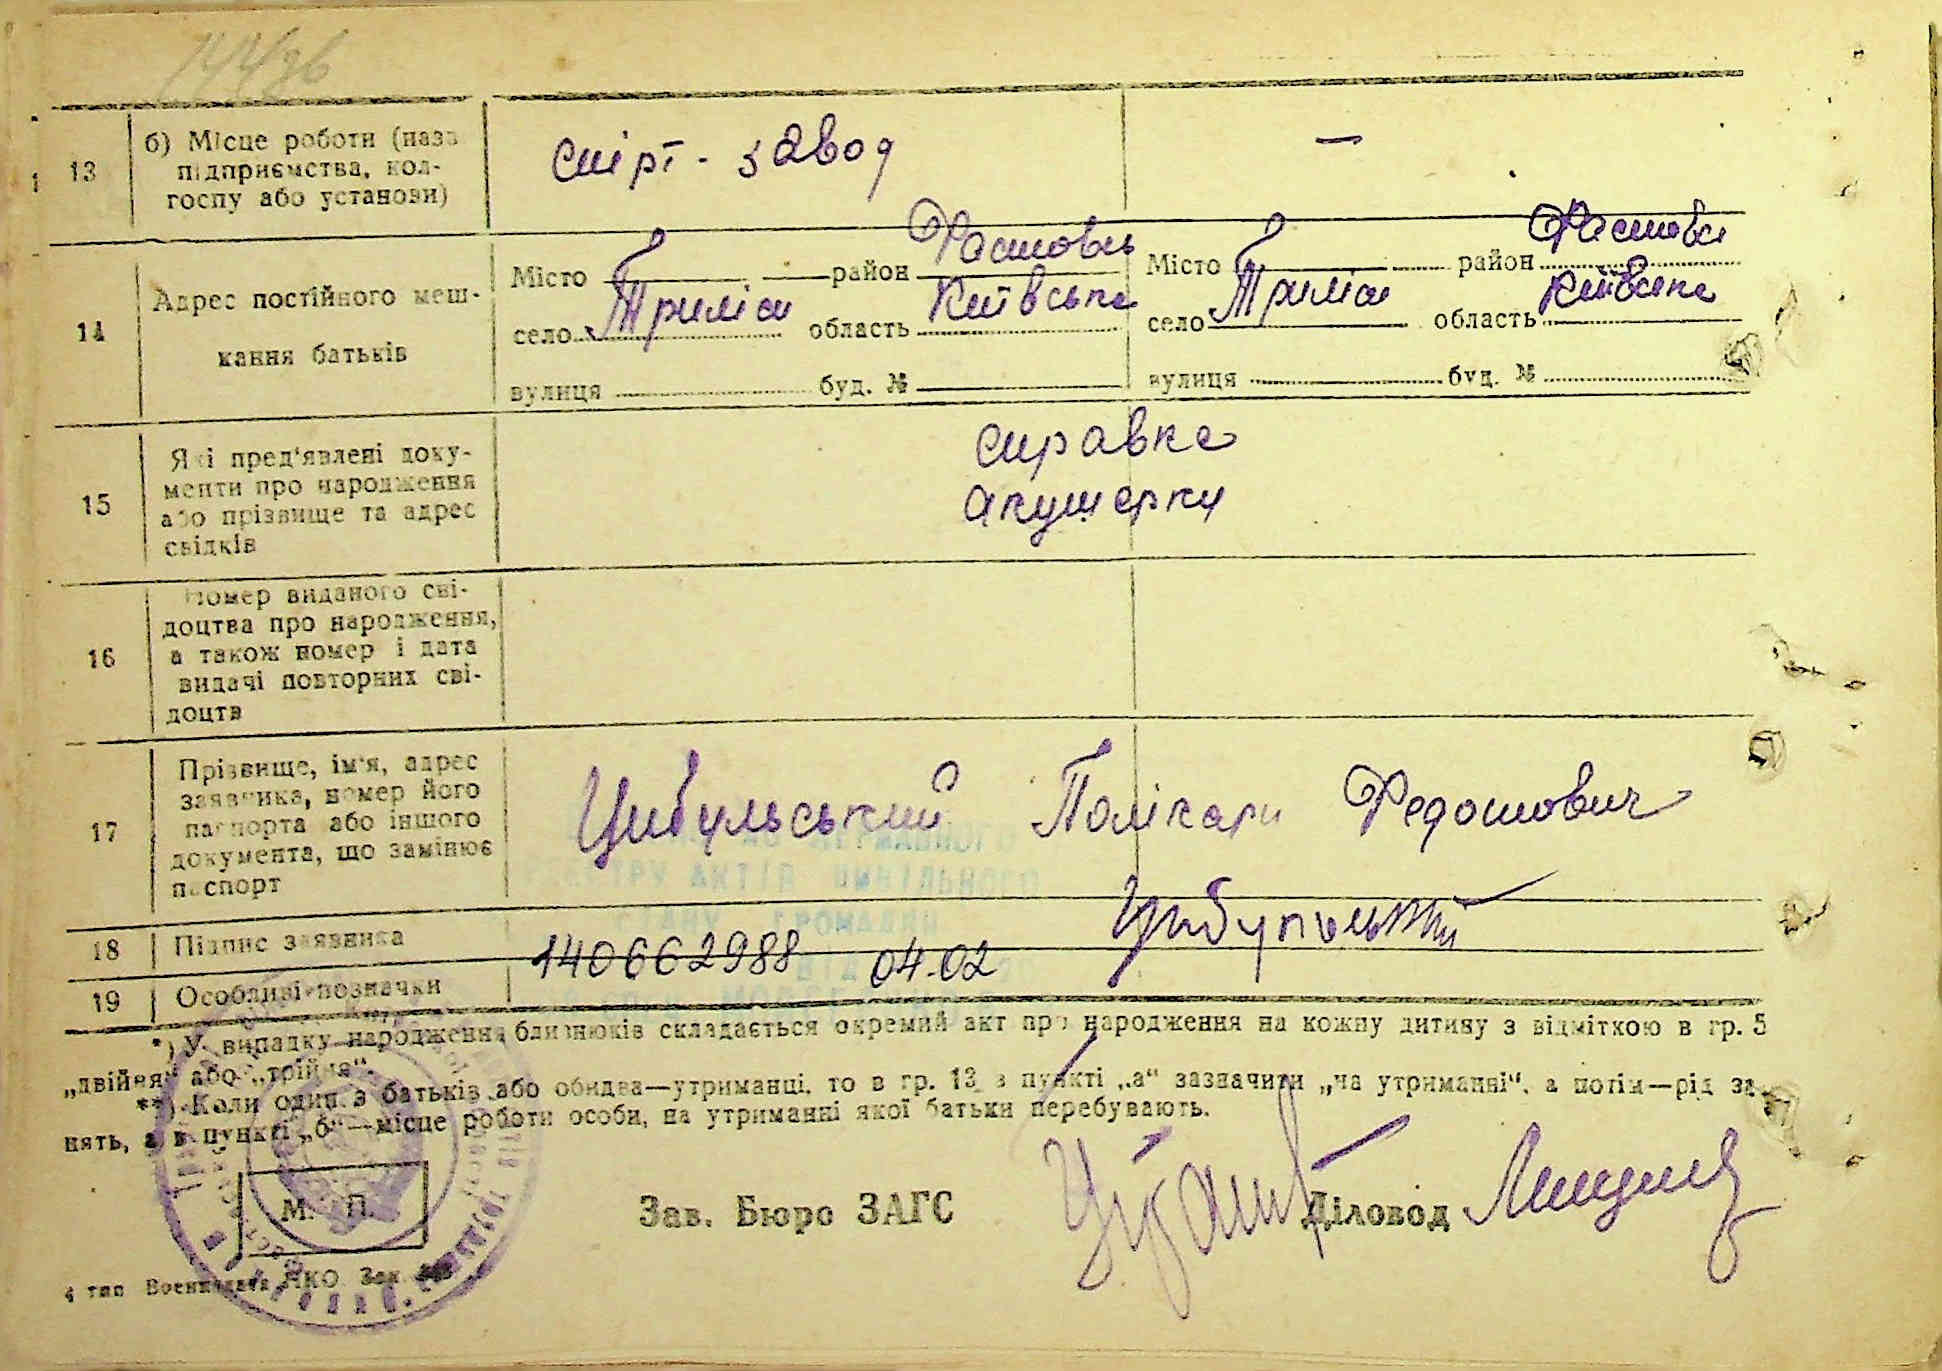 13
б) Місце роботи (назв
підприємства, кол-
госпу або установи)
спірт - завод
—
14
Адрес постійного меш-
кання батьків
Місто район Фастовсь
село Триліси область Київська
вулиця буд. №
Місто район Фастовсь
село Триліси область Київська
вулиця буд. №
15
Які пред'явлені доку-
менти про народження
або прізвище та адрес
свідків
справка
акушерки
16
Номер виданого сві-
доцтва про народження,
а також номер і дата
видачі повторних сві-
доцтв
17
Прізвище, ім'я, адрес
заявника, номер його
паспорта або іншого
документа, що замінює
паспорт
Цибульський Полікарп Федотович
18
Підпис заявника
Цибульський
19
Особливі позначки
140662988 04-02
*) У випадку народження близнюків складається окремий акт про народження на кожну дитину з відміткою в гр. 5
„двійня" або „трійня".
**) Коли один з батьків або обидва—утриманці, то в гр. 13 в пункті „а" зазначити „на утриманні", а потім—рід за-
нять, а в пункті „б"—місце роботи особи, на утриманні якої батьки перебувають.
М. П.
Зав. Бюро ЗАГС
Діловод
4 тип Воениздата НКО Зак.